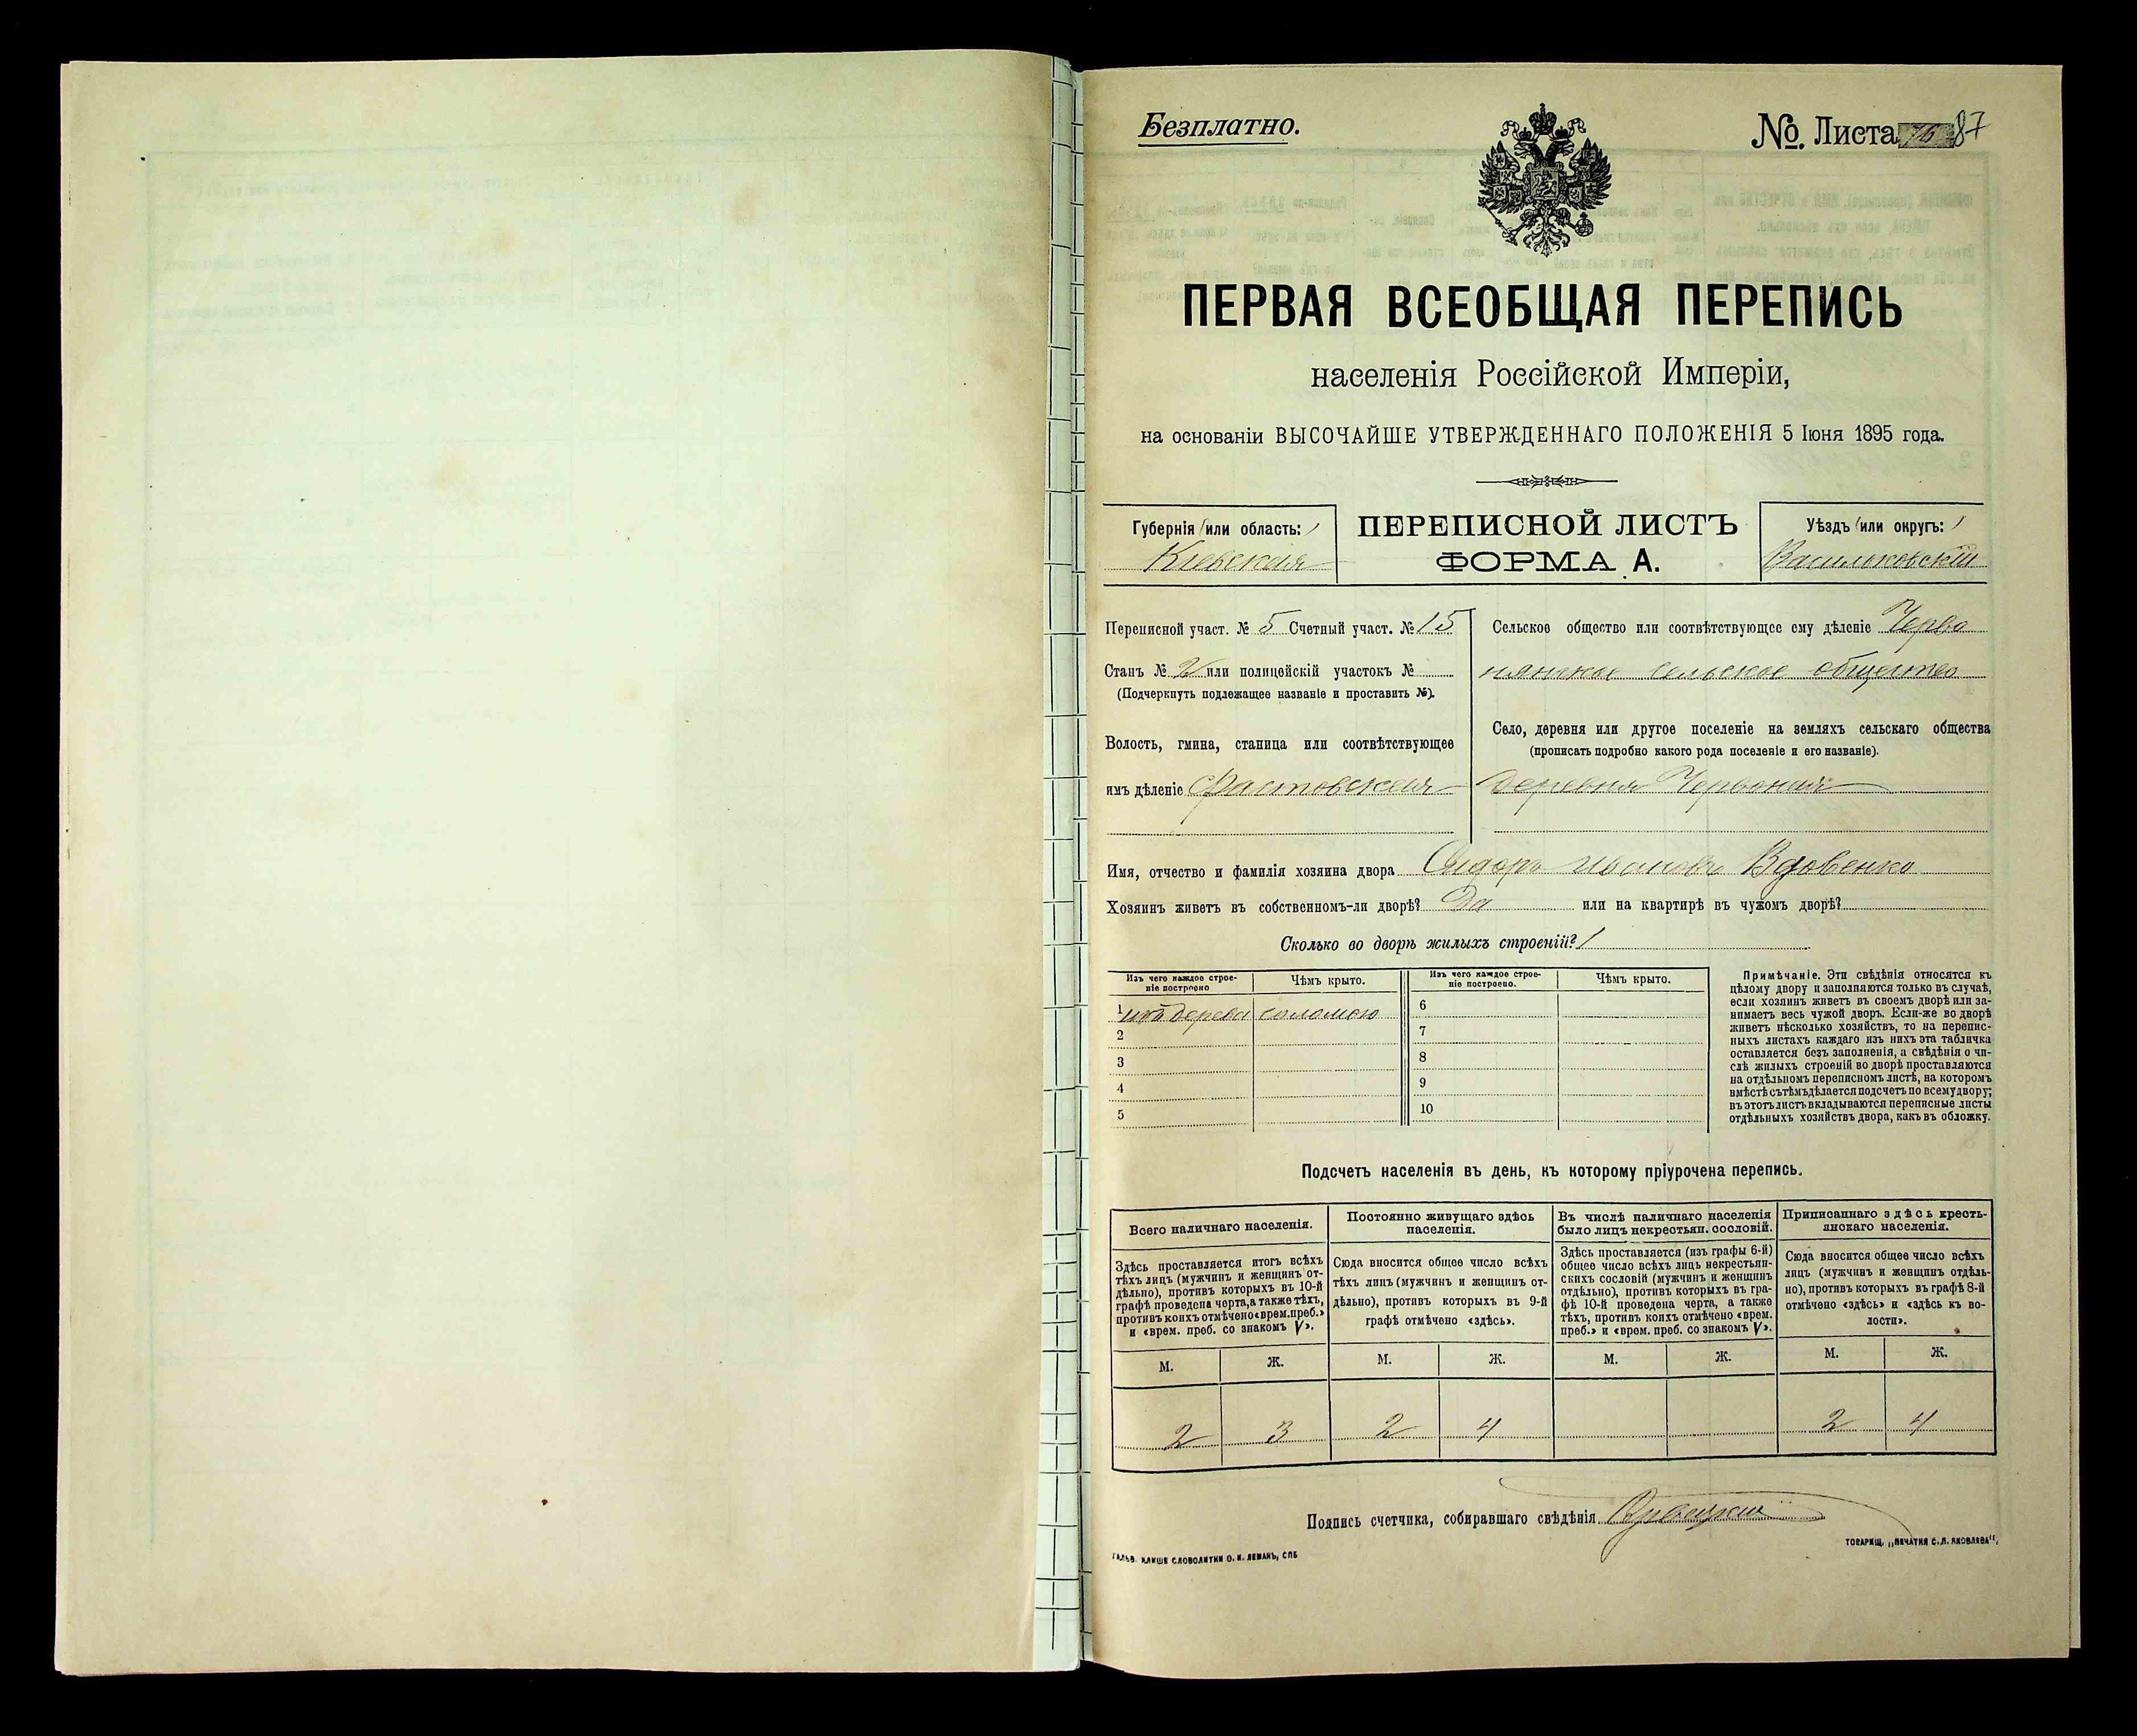 Безплатно.
№. Листа 76 87
ПЕРВАЯ ВСЕОБЩАЯ ПЕРЕПИСЬ
населенія Россійской Имперіи,
на основаніи ВЫСОЧАЙШЕ УТВЕРЖДЕННАГО ПОЛОЖЕНІЯ 5 Іюня 1895 года.
Губернія (или область:)
Кіевская
ПЕРЕПИСНОЙ ЛИСТЪ
ФОРМА А.
Уѣздъ (или округъ:)
Васильковскій
Переписной участ. № 5 Счетный участ. № 15
Станъ № 2 или полицейскій участокъ №
(Подчеркнуть подлежащее названіе и проставить №).
Волость, гмина, станица или соотвѣтствующее
имъ дѣленіе Фастовская
Сельское общество или соотвѣтствующее ему дѣленіе Черво
нянское сельское общество
Село, деревня или другое поселеніе на земляхъ сельскаго общества
(прописать подробно какого рода поселеніе и его названіе).
деревня Червоная
Имя, отчество и фамилія хозяина двора Сидоръ Ивановъ Вдовенко
Хозяинъ живетъ въ собственномъ-ли дворѣ? Да или на квартирѣ въ чужомъ дворѣ?
Сколько во дворѣ жилыхъ строеній? 1
Изъ чего каждое строе-
ніе построено
Чѣмъ крыто.
Изъ чего каждое строе-
ніе построено.
Чѣмъ крыто.
1 изъ дерева соломою
2
3
4
5
6
7
8
9
10
Примѣчаніе. Эти свѣдѣнія относятся къ
цѣлому двору и заполняются только въ случаѣ,
если хозяинъ живетъ въ своемъ дворѣ или за-
нимаетъ весь чужой дворъ. Если-же во дворѣ
живетъ нѣсколько хозяйствъ, то на перепис-
ныхъ листахъ каждаго изъ нихъ эта табличка
оставляется безъ заполненія, а свѣдѣнія о чи-
слѣ жилыхъ строеній во дворѣ проставляются
на отдѣльномъ переписномъ листѣ, на которомъ
вмѣстѣ съ тѣмъ дѣлается подсчетъ по всему двору;
въ этотъ листъ вкладываются переписные листы
отдѣльныхъ хозяйствъ двора, какъ въ обложку.
Подсчетъ населенія въ день, къ которому пріурочена перепись.
Всего наличнаго населенія.
Здѣсь проставляется итогъ всѣхъ
тѣхъ лицъ (мужчинъ и женщинъ от-
дѣльно), противъ которыхъ въ 10-й
графѣ проведена черта, а также тѣхъ,
противъ коихъ отмѣчено «врем. преб.»
и «врем. преб. со знакомъ V».
Постоянно живущаго здѣсь
населенія.
Сюда вносится общее число всѣхъ
тѣхъ лицъ (мужчинъ и женщинъ от-
дѣльно), противъ которыхъ въ 9-й
графѣ отмѣчено «здѣсь».
Въ числѣ наличнаго населенія
было лицъ некрестьян. сословій.
Здѣсь проставляется (изъ графы 6-й)
общее число всѣхъ лицъ некрестьян-
скихъ сословій (мужчинъ и женщинъ
отдѣльно), противъ которыхъ въ гра-
фѣ 10-й проведена черта, а также
тѣхъ, противъ коихъ отмѣчено «врем.
преб.» и «врем. преб. со знакомъ V».
Приписаннаго здѣсь кресть-
янскаго населенія.
Сюда вносится общее число всѣхъ
лицъ (мужчинъ и женщинъ отдѣль-
но), противъ которыхъ въ графѣ 8-й
отмѣчено «здѣсь» и «здѣсь къ во-
лости».
М. Ж. М. Ж. М. Ж. М. Ж.
2 3 2 4 2 4
Подпись счетчика, собиравшаго свѣдѣнія
ГАЛЬВ. КЛИШЕ СЛОВОЛИТНИ О. И. ЛЕМАНЪ, СПБ
ТОВАРИЩ. „ПЕЧАТНЯ С. П. ЯКОВЛЕВА“,